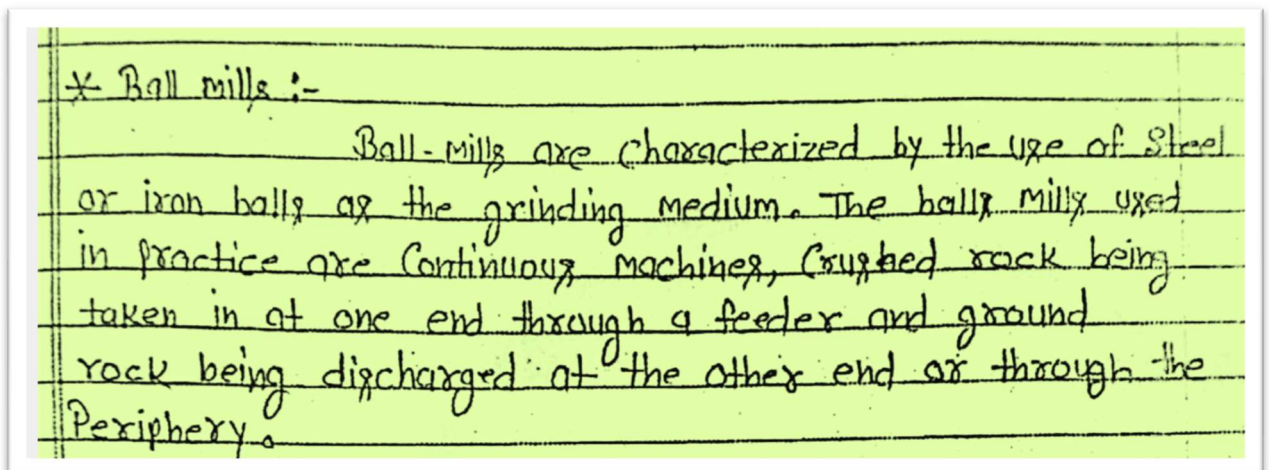 * Ball mills :-
Ball-mills are characterized by the use of Steel
or iron balls as the grinding medium. The balls mills used
in practice are Continuous machines, Crushed rock being
taken in at one end through a feeder and ground
rock being discharged at the other end or through the
Periphery.